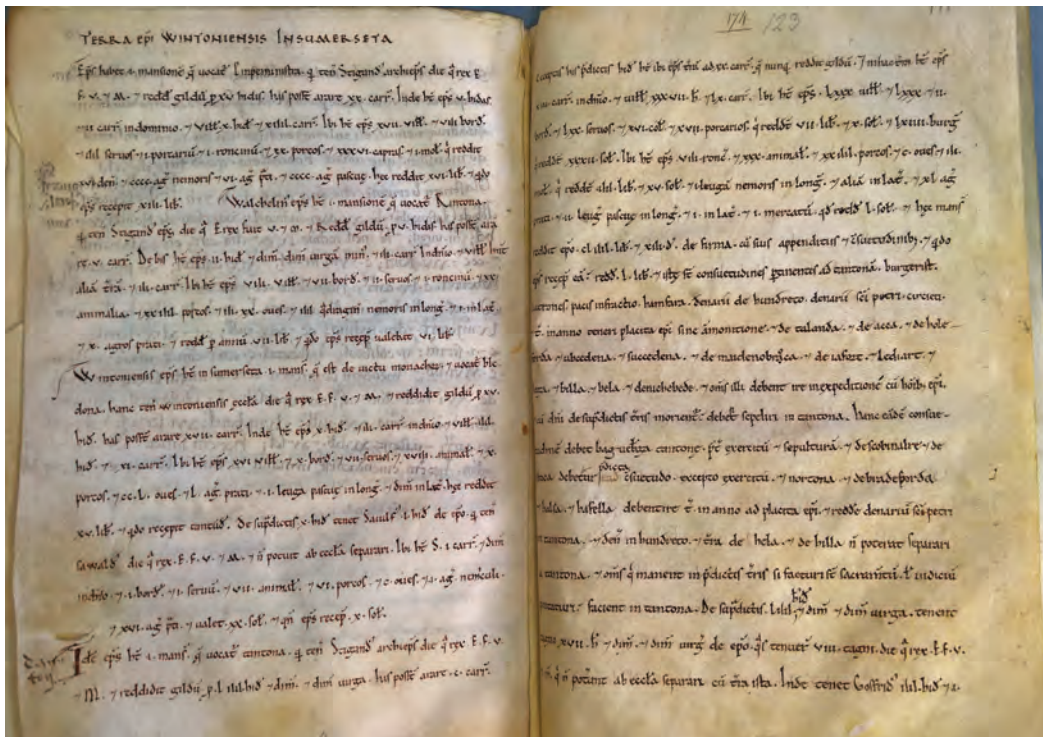 TERRA epi WINTONIENSIS IN SUMERSETA
Eps habet .i. mansione q̄ uocat͛ Pipeministra. q̄ ten̄ Stigand͛ archieps die q̄ rex E.
F. v. ⁊ m. ⁊ redd͛ gildū ꝑ xv hidis. has poss̄t arare xx. carr̄. Inde ht̄ eps v. hidas
⁊ ii carr̄ in dominio. ⁊ uill͛ x. hid͛ ⁊ xiiii. carr̄. Ibi ht̄ eps xvii. uill͛ ⁊ viii bord͛
⁊ iiii seruos ⁊ i. porcariū ⁊ i. roncinū ⁊ xx. porcos. ⁊ xxxvi. capras. ⁊ i. mol͛. q̄ reddit
xvi. den̄. ⁊ cccc. ag͛ nemoris ⁊ vi. ag͛ p̄ti. ⁊ cccc. ag͛ pascuę. hęc reddit xvi. lib͛. ⁊ q̄do
eps recepit xiii. lib͛. Walchelin͛ eps ht̄ .i. mansionē q̄ uocat͛ Rintona.
q̄ ten̄ Stigand͛ eps. die q̄ E rex fuit v. ⁊ m. ⁊ Redd͛ gildū. ꝑ v. hidis. has poss̄t ara
re. v. carr̄. De his ht̄ eps ii. hid͛ ⁊ dim̄. dim̄ uirgā min͛. ⁊ iii. carr̄ in dn̄io. ⁊ uill͛ hn̄t
aliā t̄rā. ⁊ iii. carr̄. Ibi ht̄ eps viii. uill͛. ⁊ vii. bord͛. ⁊ ii. seruos ⁊ i. roncinū. ⁊ xx.
animalia. ⁊ xxiiii. porcos. ⁊ iiii. xx. oues. ⁊ iiii q̄dragin̄ nemoris in long͛. ⁊ i. in lat͛.
⁊ x. agros prati. ⁊ redd͛ ꝑ annū vii. lib͛. ⁊ q̄do eps recep̄ ualebat vi. lib͛.
Wintoniensis eps ht̄ in sumerseta .i. mans͛. q̄ est de uictu monachoꝝ. ⁊ uocat͛ ble
dona. hanc ten̄ wintoniensis ęccl̄a die q̄ rex E. F. v. ⁊ m. ⁊ reddidit gildū ꝑ xv.
hid͛. has poss̄t arare xvii. carr̄. Inde ht̄ eps x. hid͛. ⁊ iii. carr̄ in dn̄io ⁊ uill͛ iiii.
hid͛. ⁊ xi. carr̄. Ibi ht̄ eps xvi uill͛. ⁊ x. bord͛. ⁊ vii. seruos. ⁊ xviii. animal͛. ⁊ x.
porcos. ⁊ cc. l. oues. ⁊ l. ag͛ prati. ⁊ i. leuga pascuę in long͛. ⁊ dim̄ in lat͛. hęc reddit
xv. lib͛. ⁊ q̄do recepit tantūd͛. De sup̄dictis. x. hid͛ tenet Saulf͛ .i. hid͛ de ep̄o. q̄ ten̄
sawald͛ die q̄ rex. E. F. v. ⁊ m. ⁊ n̄ potuit ab ęccl̄a separari. Ibi ht̄ S. i. carr̄. ⁊ dim̄
in dn̄io. ⁊ i. bord͛. ⁊ i. seruū. ⁊ vii. animal͛. ⁊ vi. porcos. ⁊ c. oues. ⁊ i. ag͛. nem̄culi.
⁊ xvi. ag͛ p̄ti. ⁊ ualet. xx. sol͛. ⁊ qn̄ eps recep̄. x. sol͛.
Idē eps ht̄ .i. mans͛. q̄ uocat͛ tantona. q̄ ten̄ Stigand͛ archieps die q̄ rex E. F. v.
⁊ m. ⁊ reddidit gildū. ꝑ l iiii. hid͛ ⁊ dim̄. ⁊ dim̄ uirga. has poss̄t arare. c. carr̄.
174 123
Exceptis his p̄dictis hid͛ ht̄ ibi eps t̄rā ad xx. carr̄. q̄ nunq̄ reddit gildū. ⁊ in hac t̄ra ht̄ eps
xiii. carr̄ in dn̄io. ⁊ uill͛ xxxvii. h̄. ⁊ lx. carr̄. Ibi ht̄ eps. lxxx uill͛. ⁊ lxxx ⁊ ii.
bord͛. ⁊ lxx. seruos. ⁊ xvi. col͛. ⁊ xvii. porcarios. q̄ reddt̄ vii. lib͛. ⁊ x. sol͛. ⁊ lxiiii. burg͛
q̄ reddt̄ xxxii. sol͛. Ibi ht̄ eps. viii. ronc̄. ⁊ xxx. animal͛. ⁊ xxiiii. porcos. ⁊ c. oues. ⁊ iii.
mol͛. q̄ reddt̄ iiii. lib͛. ⁊ xv. sol͛. ⁊ i leugā nemoris in long͛. ⁊ aliā in lat͛. ⁊ xl ag͛
prati. ⁊ ii. leug͛ pascuę in long͛. ⁊ i. in lat͛. ⁊ i. mercatū. q̄d redd͛ l. sol͛. ⁊ hęc mans͛
reddit ep̄o. cl iiii. lib͛. ⁊ xiii. d͛. de firma. cū suis appendiciis ⁊ c̄suetudinib͛. ⁊ q̄do
eps recep̄ eā. redd͛. l. lib͛. ⁊ istę st̄ consuetudines ꝑtinentes ad tantonā. burgerist.
latrones. pacis infractio. hamfara. denarii de hundreto. denarii sc̄i petri. circieti.
t̄. in anno teneri placita ep̄i sine āmonitione. ⁊ de talanda. ⁊ de acca. ⁊ de hole
forda ⁊ ubcedena. ⁊ succedena. ⁊ de maidenobrōca. ⁊ de laford. ⁊ lediart. ⁊
⁊ hilla. ⁊ hela. ⁊ de nichehede. ⁊ om̄s illi debent ire in expeditionē cū hōib; ep̄i.
cū dn̄i de sup̄dictis t̄ris morient͛. debēt sepeliri in tantona. hanc eādē consue
tudinē debet bagueberga tantonę. p̄t̄ exercitū ⁊ sepulturā. ⁊ de scobinalre ⁊ de
debet͛ p̄dicta c̄suetudo. excepto exercitū. ⁊ nortona. ⁊ de bradeforda
⁊ halla. ⁊ hafella debent ire t̄. in anno ad placita ep̄i. ⁊ redde denariū sc̄i petri
in tantona. ⁊ den̄ in hundreto. ⁊ t̄ra de hela. ⁊ de hilla n̄ poterat separari
a tantona. ⁊ om̄s q̄ manent in p̄dictis t̄ris si facturi st̄ sacram̄tū. ł iudiciū
portaturi. facient in tantona. De sup̄dictis. liiii. hid͛ ⁊ dim̄ ⁊ dim̄ uirga. tenent
xvii. h̄ ⁊ dim̄. ⁊ dim̄ uirg͛ de ep̄o. q̄s tenuer̄ viii. tagni. die q̄ rex. E. F. v.
⁊ m̄. q̄ n̄ potuer̄t ab ęccl̄a separari cū t̄ra ista. Inde tenet Goffrid͛ iiii. hid͛ ⁊ i.